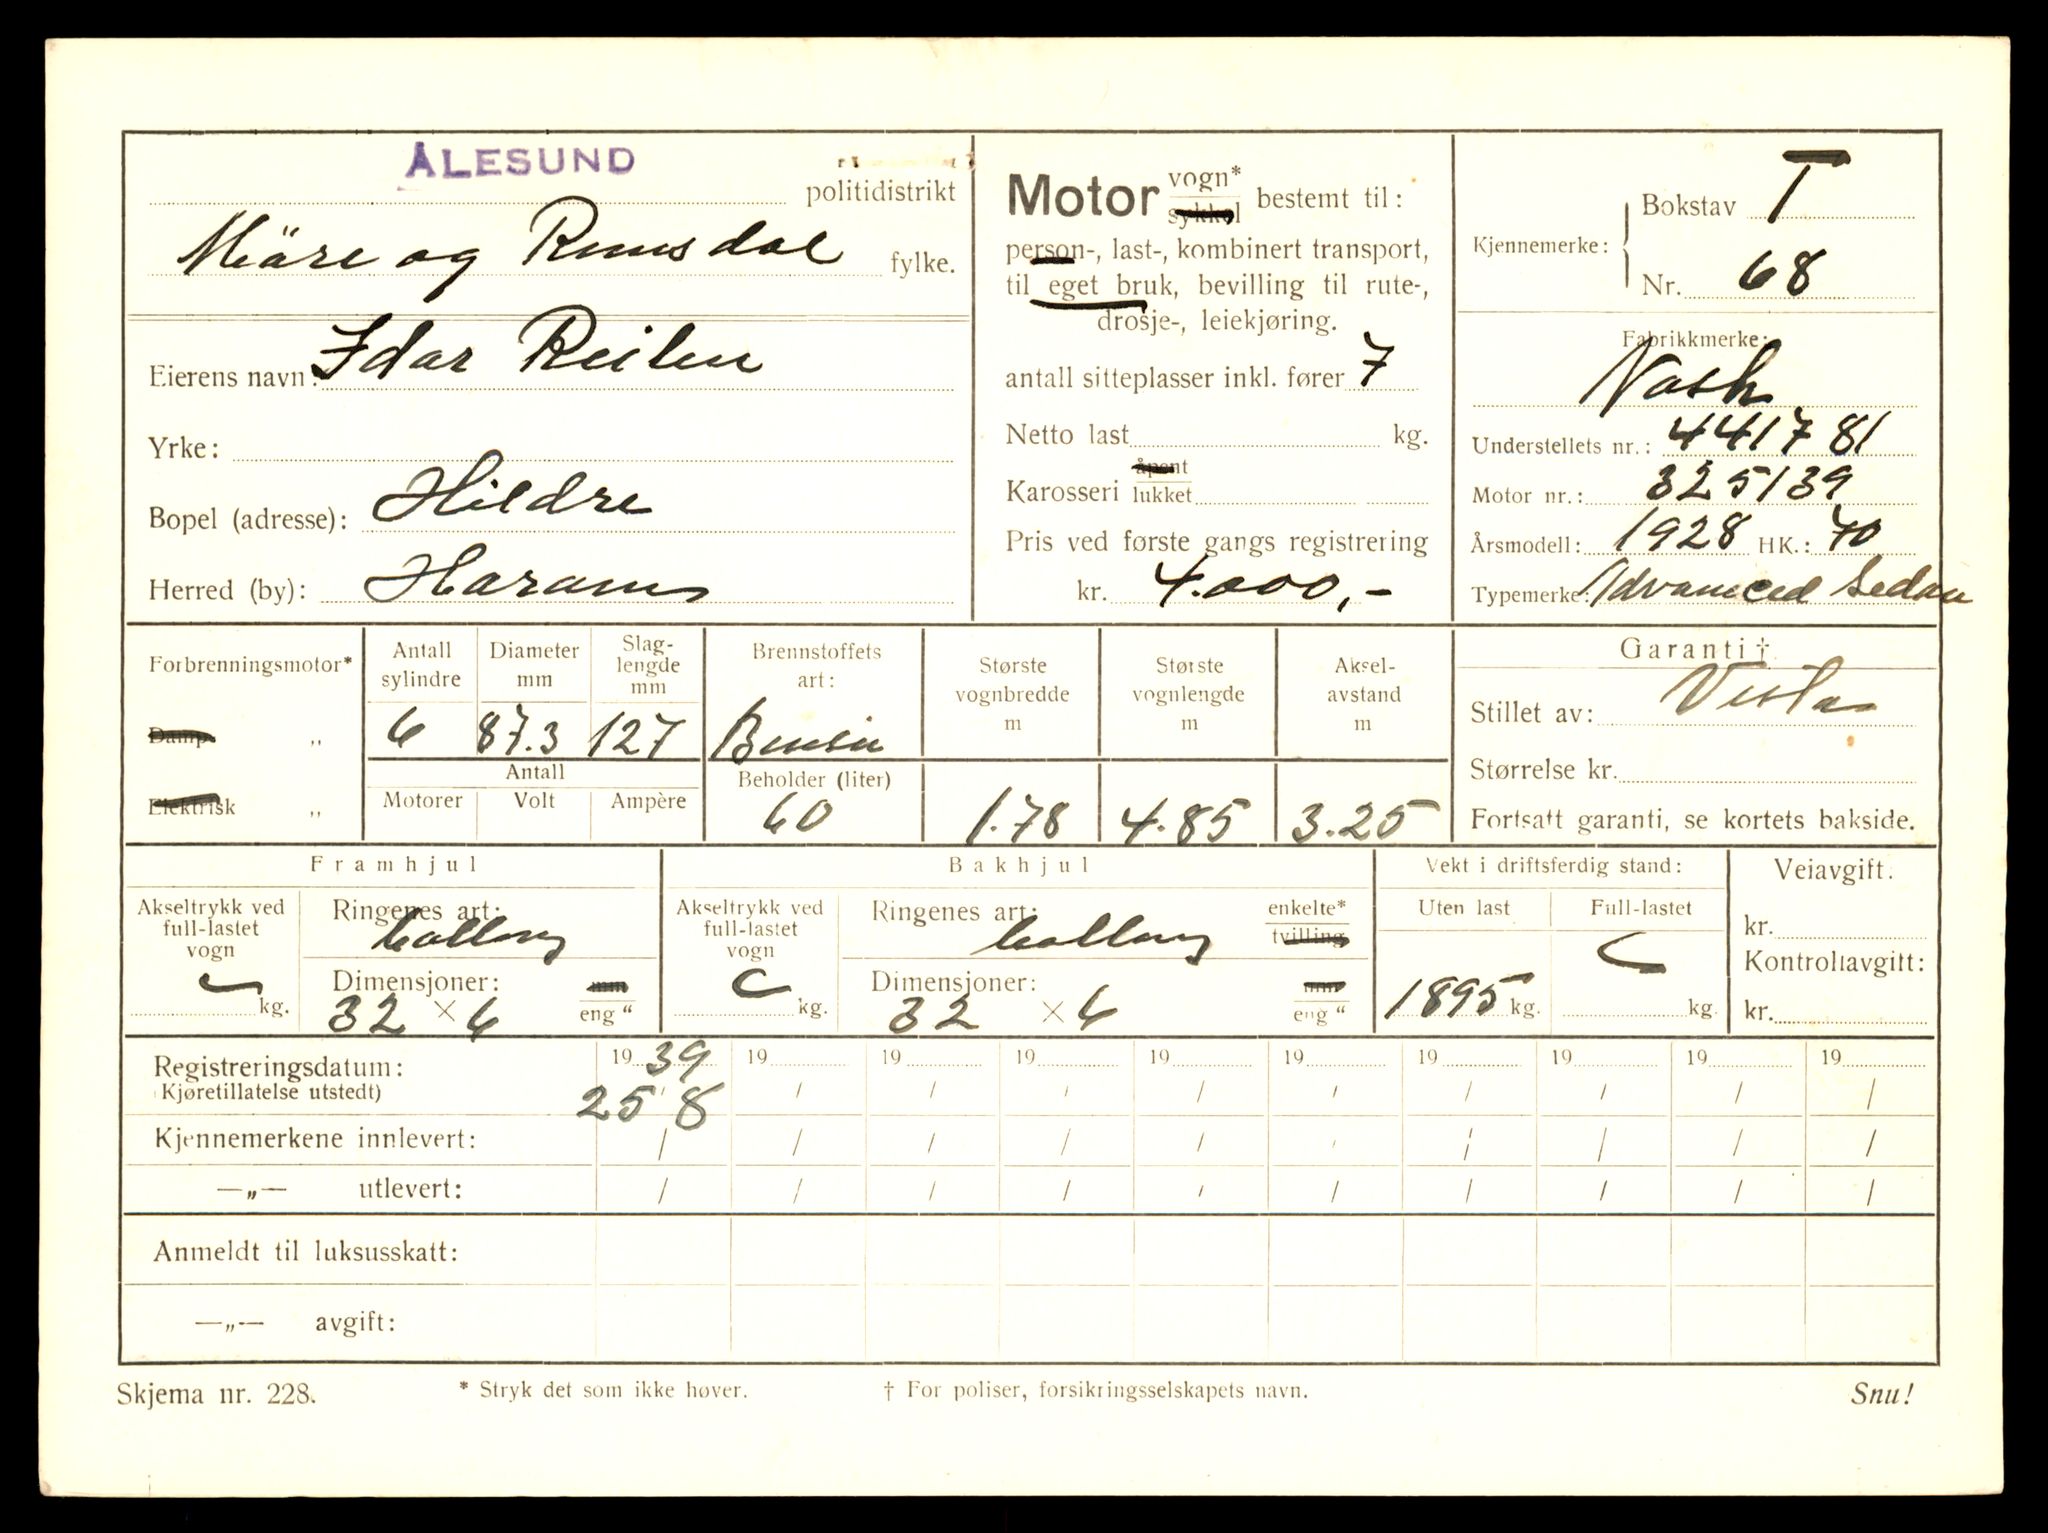 ÅLESUND
politidistrikt
Møre og Romsdal fylke.
Eierens navn: Idar Reiten
Yrke:
Bopel (adresse): Hildre
Herred (by): Harams
Motor vogn* sykkel bestemt til:
person-, last-, kombinert transport,
til eget bruk, bevilling til rute-,
drosje-, leiekjøring.
antall sitteplasser inkl. fører 7
Netto last kg.
Karosseri åpent lukket
Pris ved første gangs registrering
kr. 4.000,-
Kjennemerke: Bokstav T
Nr. 68
Fabrikkmerke:
Nash
Understellets nr.: 441781
Motor nr.: 325139
Årsmodell: 1928 HK.: 70
Typemerke: Advanced Sedan
Forbrenningsmotor*
Damp „
Elektrisk „
Antall sylindre
6
Diameter mm
87.3
Slag-lengde mm
127
Antall
Motorer Volt Ampère
Brennstoffets art:
Bensin
Beholder (liter)
60
Største vognbredde m
1.78
Største vognlengde m
4.85
Aksel-avstand m
3.25
Garanti †
Stillet av: Vesta
Størrelse kr.
Fortsatt garanti, se kortets bakside.
Framhjul
Akseltrykk ved full-lastet vogn
kg.
Ringenes art: ballong
Dimensjoner: mm
32 × 6 eng “
Bakhjul
Akseltrykk ved full-lastet vogn
kg.
Ringenes art: ballong enkelte* tvilling
Dimensjoner: mm
32 × 6 eng “
Vekt i driftsferdig stand:
Uten last Full-lastet
1895 kg. kg.
Veiavgift.
kr.
Kontrollavgift:
kr.
Registreringsdatum: 1939 19 19 19 19 19 19 19 19 19
(Kjøretillatelse utstedt) 25/8 / / / / / / / / /
Kjennemerkene innlevert: / / / / / / / / / /
—„— utlevert: / / / / / / / / / /
Anmeldt til luksusskatt:
—„— avgift:
Skjema nr. 228. * Stryk det som ikke høver. † For poliser, forsikringsselskapets navn. Snu!